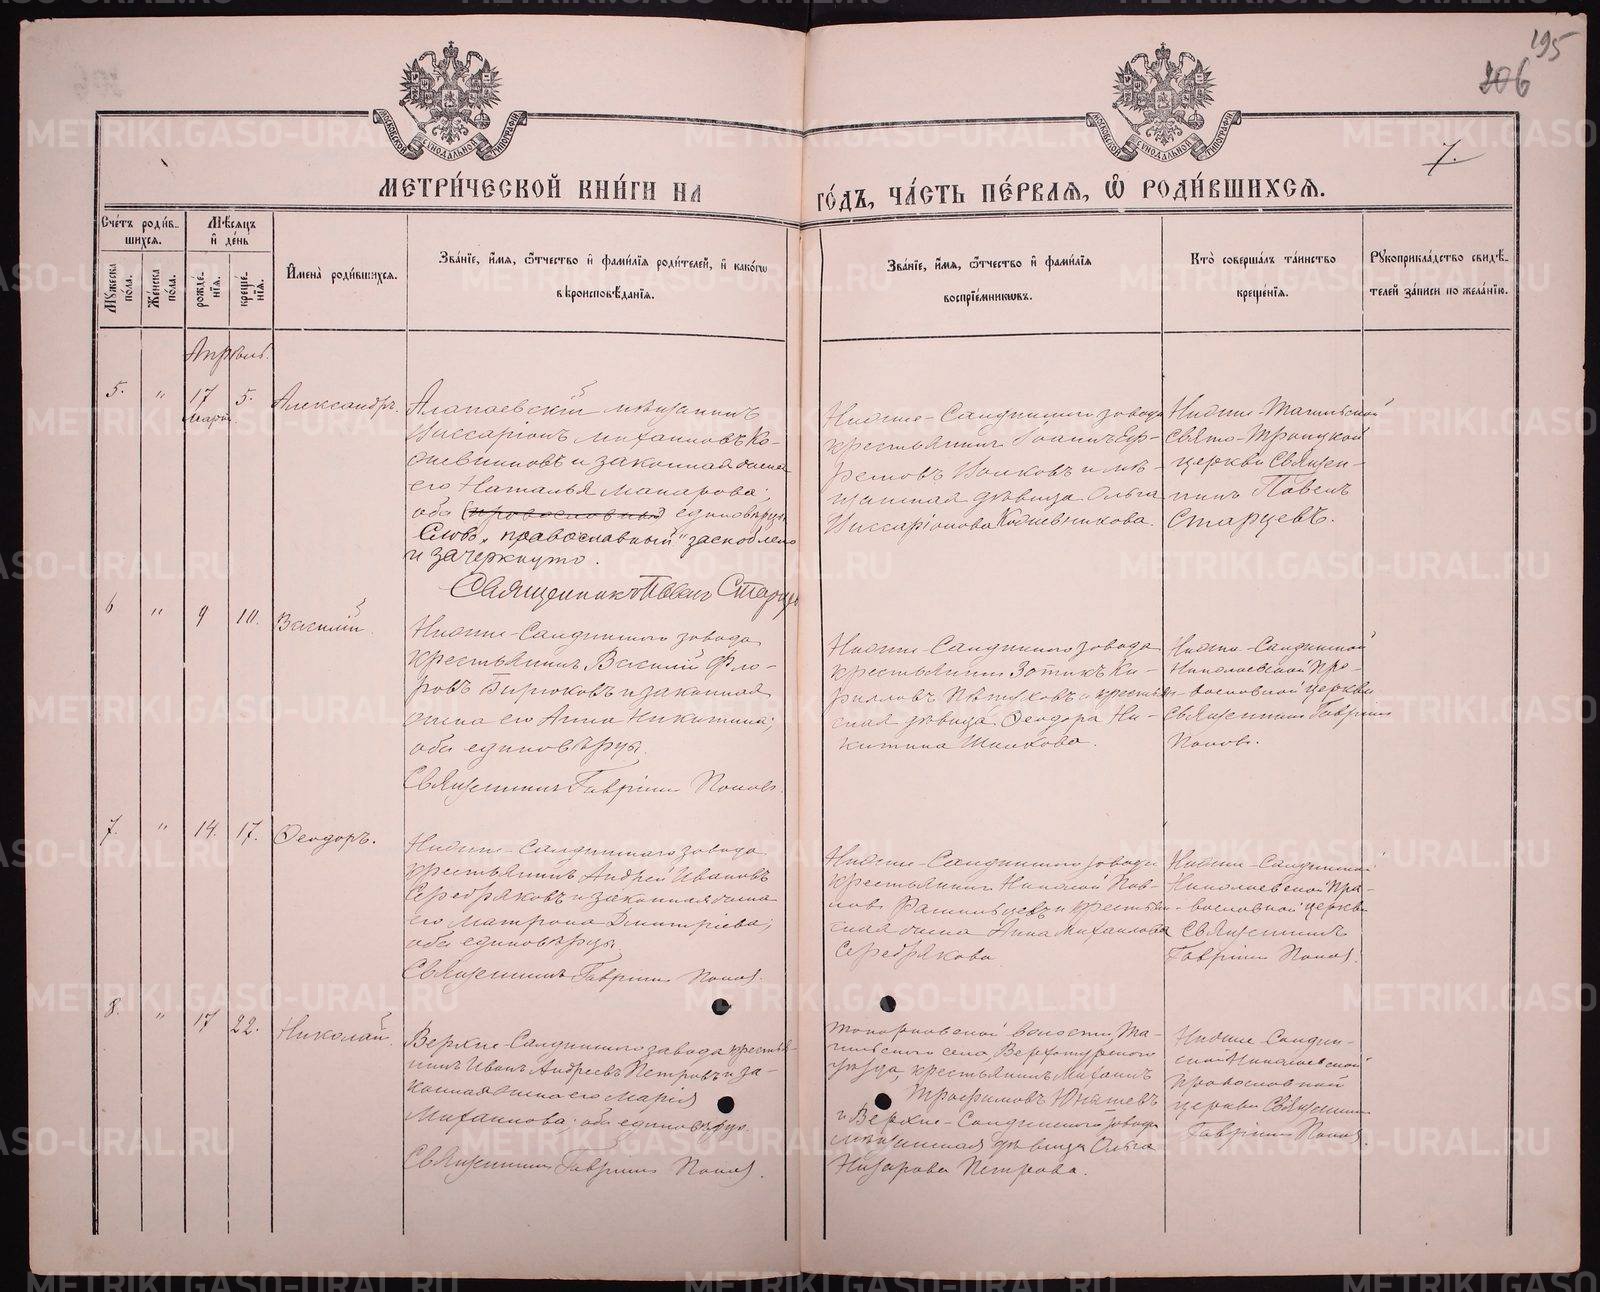 195
206
7.
МОСКОВСКОЙ СѴНОДАЛЬНОЙ ТИПОГРАФІИ
МОСКОВСКОЙ СѴНОДАЛЬНОЙ ТИПОГРАФІИ
МЕТРИ́ЧЕСКОЙ КНИ́ГИ НА
ГО́ДЪ, ЧА́СТЬ ПЕ́РВАЯ, Ѽ РОДИ́ВШИХСЯ.
Сче́тъ роди́в-
шихся.
Мѣ́сяцъ
и҆ де́нь
Мꙋ́жеска по́ла.
Же́нска по́ла.
рожде́-
нїѧ.
креще́-
нїѧ.
И҆мена̀ роди́вшихся.
Зва́нїе, и҆́мя, ѻ҆́тчество и҆ фами́лїя роди́телей, и҆ како́гѡ
вѣроисповѣ́данїя.
Зва́нїе, и҆́мя, ѻ҆́тчество и҆ фами́лїя
воспрїе́мникѡвъ.
Кто̀ соверша́лъ та́инство
креще́нїя.
Рꙋкоприкла́дство свидѣ́-
телей за́писи по жела́нїю.
Апрѣль.
5.
"
17
Март.
5.
Александръ.
Алапаевскій мѣщанинъ
Виссаріонъ Михаиловъ Ко-
жевниковъ и законная жена
его Наталья Макарова;
оба (православные) единовѣрцы
Слово „православный" заскоблено
и зачеркнуто.
Священникъ Павелъ Старцевъ
Нижне-Салдинскаго завода
крестьянинъ Іоаннъ Еф-
ремовъ Волковъ и мѣ-
щанская дѣвица Ольга
Виссаріонова Кожевникова.
Нижне-Тагильской
Свято-Троицкой
церкви Священ-
никъ Павелъ
Старцевъ.
6
"
9
10.
Василій.
Нижне-Салдинскаго завода
крестьянинъ Василій Фло-
ровъ Бирюковъ и законная
жена его Анна Никитина;
оба единовѣрцы.
Священникъ Гавріилъ Поповъ.
Нижне-Салдинскаго завода
крестьянинъ Зотикъ Ки-
рилловъ Пѣтуховъ и крестьян-
ская дѣвица Ѳеодора Ни-
китина Шилкова.
Нижне-Салдинской
Николаевской Пра-
вославной церкви
Священникъ Гавріилъ
Поповъ.
7.
"
14.
17.
Ѳеодоръ.
Нижне-Салдинскаго завода
крестьянинъ Андрей Ивановъ
Серебряковъ и законная жена
его Матрона Димитріева;
оба единовѣрцы.
Священникъ Гавріилъ Поповъ.
Нижне-Салдинскаго завода
крестьянинъ Николай Пав-
ловъ и крестьян-
ская жена Анна Михаилова
Серебрякова
Нижне-Салдинской
Николаевской Пра-
вославной церкви
Священникъ
Гавріилъ Поповъ.
8.
"
17
22.
Николай.
Верхне-Салдинскаго завода крестья-
нинъ Иванъ Андреевъ Петровъ и за-
конная жена его Марія
Михаилова; оба единовѣрцы.
Священникъ Гавріилъ Поповъ.
Топорковской волости, Та-
гильскаго села, Верхотурскаго
уѣзда, крестьянинъ Михаилъ
Трофимовъ Юнашевъ
и Верхне-Салдинскаго завода
мѣщанская дѣвица Ольга
Назарова Петрова.
Нижне-Салдин-
ской Николаевской
Православной
церкви Священникъ
Гавріилъ Поповъ.
METRIKI.GASO-URAL.RU